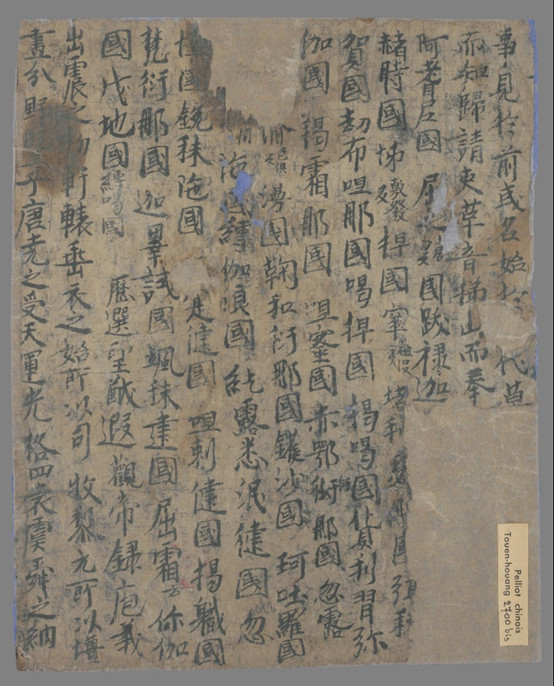 事見於前或名始於 代莫
而知歸請吏革音梯山而奉
阿耆尼國 屈支 國跋祿迦
赭時國 敷發 捍國 窣 堵利 國 弭秣
賀國劫布呾那國喝捍國 捐喝國貨利習弥
伽國 羯霜那國 呾蜜國赤鄂衍那國忽露
漫國鞠和衍那國鑊沙國 珂咄羅國
陁國縛伽浪國 紇露悉泯健國 忽
懍國銳秣陁國 寔健國 呾剌健國揭軄國
梵衍那國 迦畢試國颯秣建國 屈霜去你伽
國戊地國縛喝國 歷選皇猷遐觀帝錄庖羲
出震之初軒轅垂衣之始所以司牧黎元所以壃
畫分野暨乎唐堯之受天運光格四表虞舜之納
Pelliot chinois
Touen-houang 2700 bis